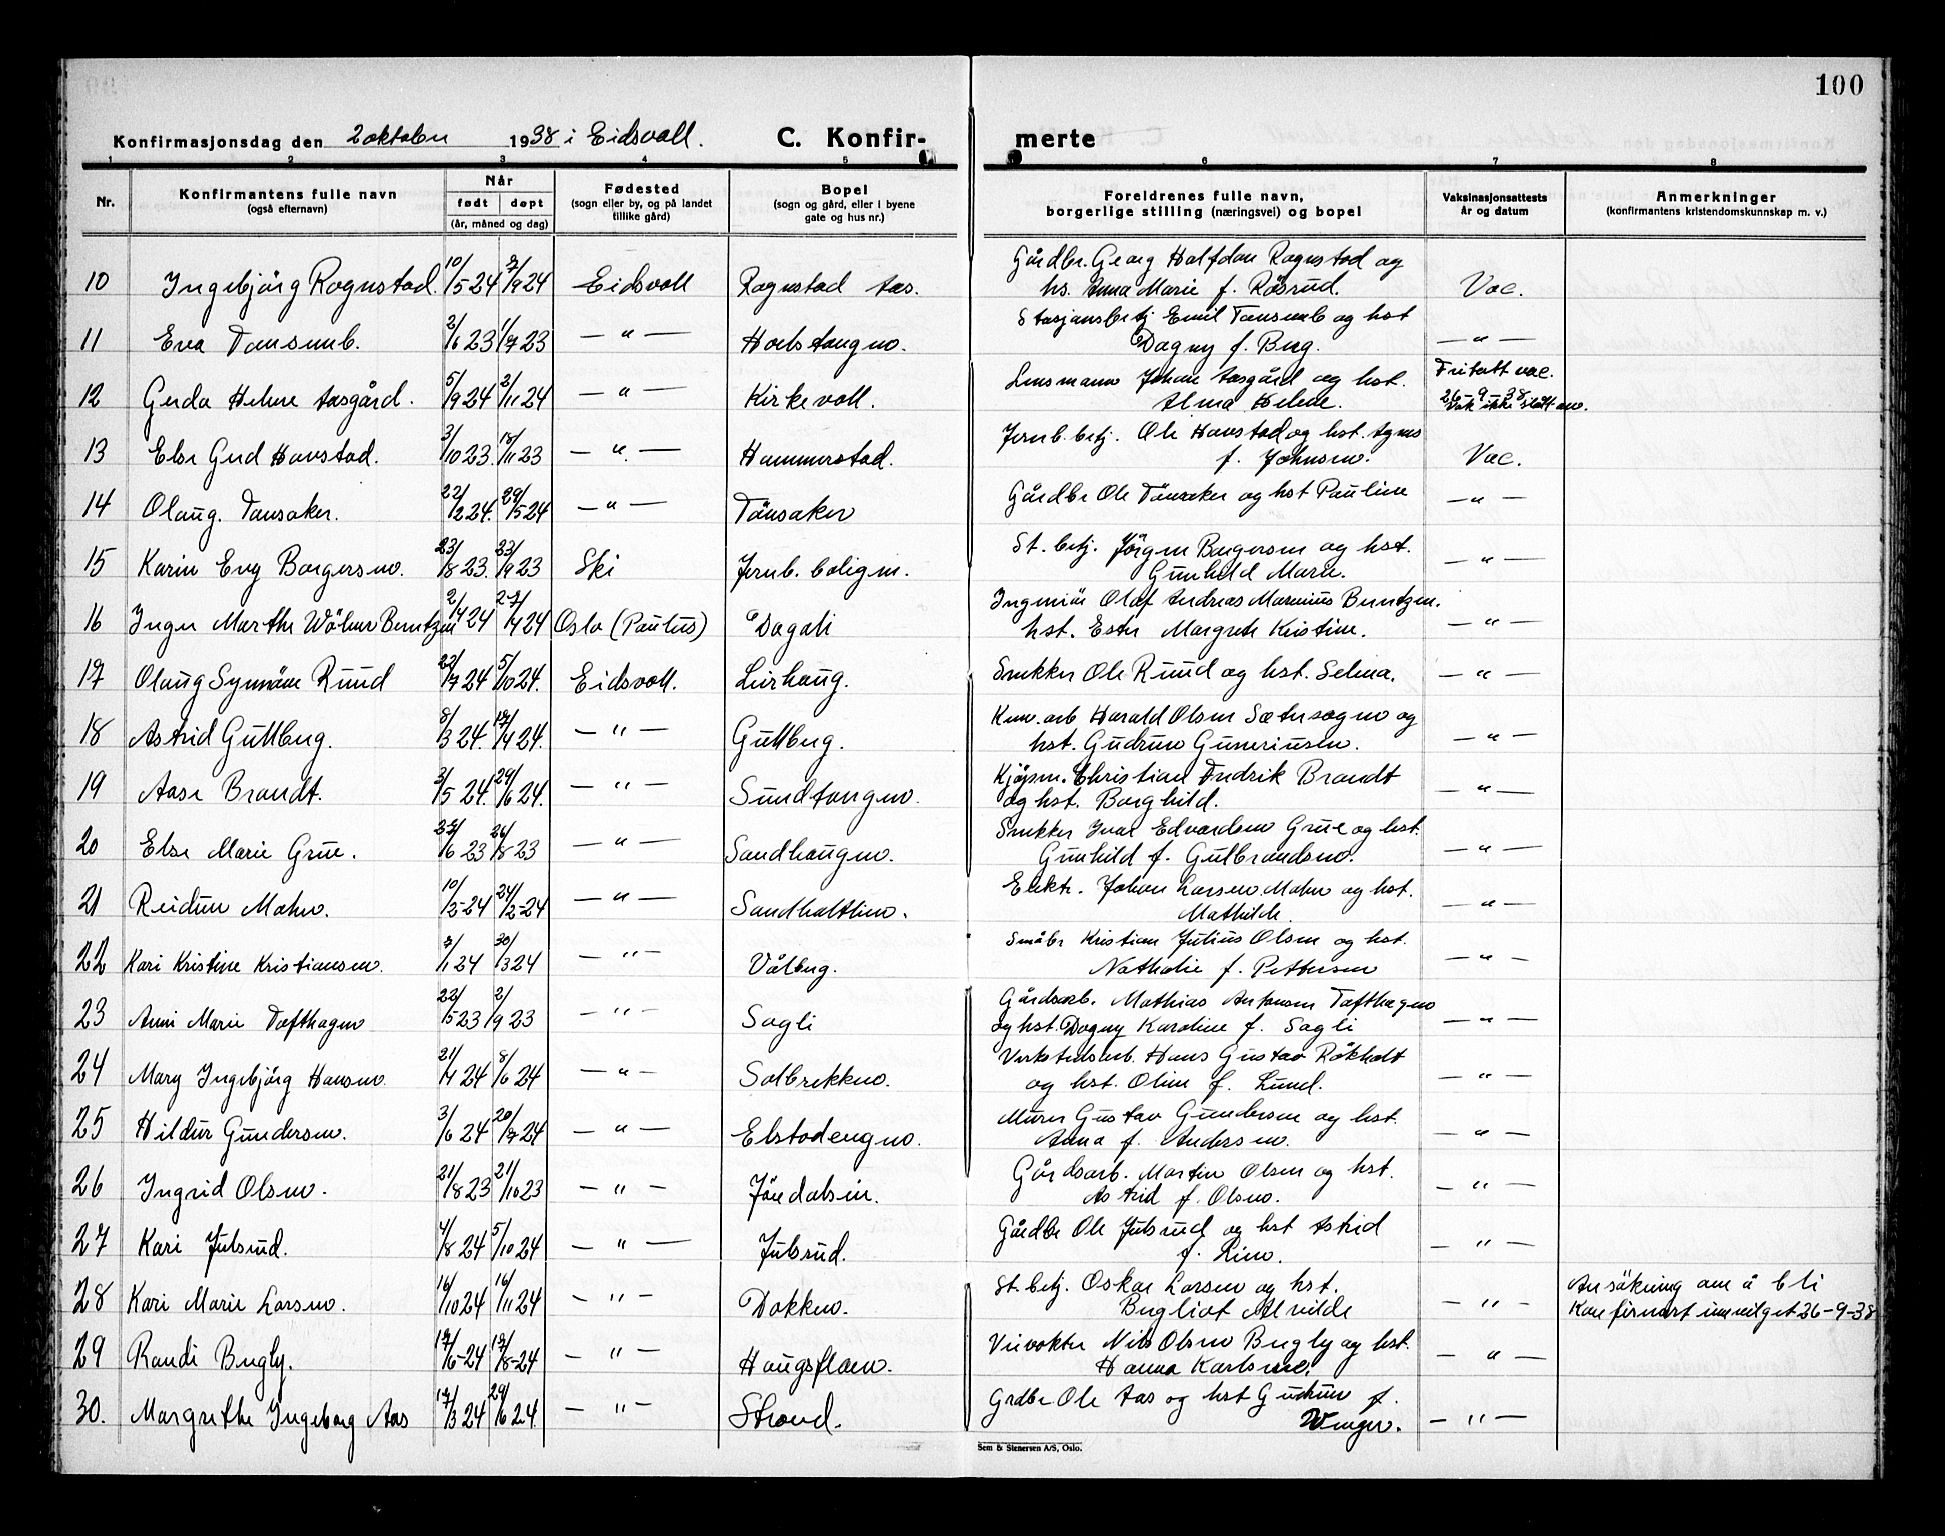 100
Konfirmasjonsdag den 2 oktober 1938 i Eidsvoll. C. Konfir- merte
1 2 3 4 5 6 7 8
Nr. Konfirmantens fulle navn (også efternavn) Når født døpt (år, måned og dag) Fødested (sogn eller by, og på landet tillike gård) Bopel (sogn og gård, eller i byene gate og hus nr.) Foreldrenes fulle navn, borgerlige stilling (næringsvei) og bopel Vaksinasjonsattests År og datum Anmerkninger (konfirmantens kristendomskunnskap m. v.)
10 Ingebjörg Rognstad. 10/5 24 7/9 24 Eidsvoll Rognstad Aas. Gårdbr. Georg Halfdan Rognstad og
hs. Anna Marie f. Rösrud. Vac.
11 Eva Tansemb. 2/6 23 1/7 23 — " — Holstangen. Stasjonsbetj Emil Tansemb og hst
Dagny f. Berg. — " —
12 Gerda Helene Aasgård. 5/9 24 2/11 24 — " — Kirkevoll. Lensmann Johan Aasgård og hst.
Alma Helene. Fritatt vac.
26-9-38
Vak ikke slått an.
13 Else Gerd Havstad. 3/10 23. 18/11 23 — " — Hammerstad. Jernb. betj. Ole Havstad og hst. Agnes
f. Johnsen. Vac.
14 Olaug Tansaker. 22/2 24. 29/5 24 — " — Tönsaker Gårdbr Ole Tönsaker og hst Pauline — " —
15 Karin Eng Borgersen. 23/8 23. 23/9 23 Ski Jernb. boligen. St. betj. Jörgen Borgersen og hst.
Gunhild Marie. — " —
16 Inger Marthe Wölner Berntzen 2/4 24 27/4 24 Oslo (Paulus) Dagali Ingeniör Olaf Andreas Marenius Berntzen.
hst. Ester Margrete Kristine. — " —
17 Olaug Synnöve Ruud 22/7 24 5/10 24. Eidsvoll. Lirhaug. Snekker Ole Ruud og hst. Selma. — " —
18 Astrid Gullberg. 8/3 24. 17/4 24. — " — Gullberg. Kom. arb Harald Olsen Sætersogen og
hst. Gudrun Guneriusen. — " —
19 Aase Brandt. 3/5 24. 29/6 24. — " — Sundtangen. Kjöpm. Christian Fredrik Brandt
og hst. Borghild. — " —
20 Else Marie Grue. 25/6 23 26/8 23 — " — Sandhaugen. Snekker Ivar Edvardsen Grue og hst.
Gunhild f. Gulbrandsen. — " —
21 Reidun Mohn. 10/2-24 24/2-24 — " — Sandholtlien. Elektr. Johan Larsen Mohn og hst.
Mathilde. — " —
22 Kari Kristine Kristiansen. 7/1 24 30/3 24 — " — Vålberg. Småbr Kristian Julius Olsen og hst.
Nathalie f. Pettersen — " —
23 Anni Marie Tofthagen 22/5 23 2/9 23 — " — Sagli Gårdsarb. Mathias Antonsen Tofthagen
og hst. Dagny Karoline f. Sagli — " —
24 Mary Ingebjörg Hansen. 21/4 24 8/6 24 — " — Solbrekken. Verkstedsarb. Hans Gustav Rökholt
og hst. Oline f. Lund. — " —
25 Hildur Gundersen. 3/6 24 20/7 24 — " — Elstadengen. Murer Gustav Gundersen og hst.
Anna f. Andersen. — " —
26 Ingrid Olsen. 21/8 23 21/10 23 — " — Jöndalseier. Gårdsarb. Martin Olsen og hst.
Astrid f. Olsen. — " —
27 Kari Julsrud. 4/8 24 5/10 24 — " — Julsrud. Gårdbr Ole Julsrud og hst Astrid
f. Lien. — " —
28 Kari Marie Larsen. 16/10 24 16/11 24 — " — Dokken. St. betj. Oskar Larsen og hst.
Bergliot Alvilde — " — Ansökning om å bli
Konfirmert innvilget 26-9-38
29 Randi Bergly. 17/6-24 17/8-24 — " — Haugsfloen. Veivokter Nils Olsen Bergly og hst.
Hanna Karlsine. — " —
30. Margrethe Ingeborg Aas 17/3 24 29/6 24. — " — Strand. Grdbr Ole Aas og hst Gudrun f.
Winger. — " —
Sem & Stenersen A/S, Oslo.